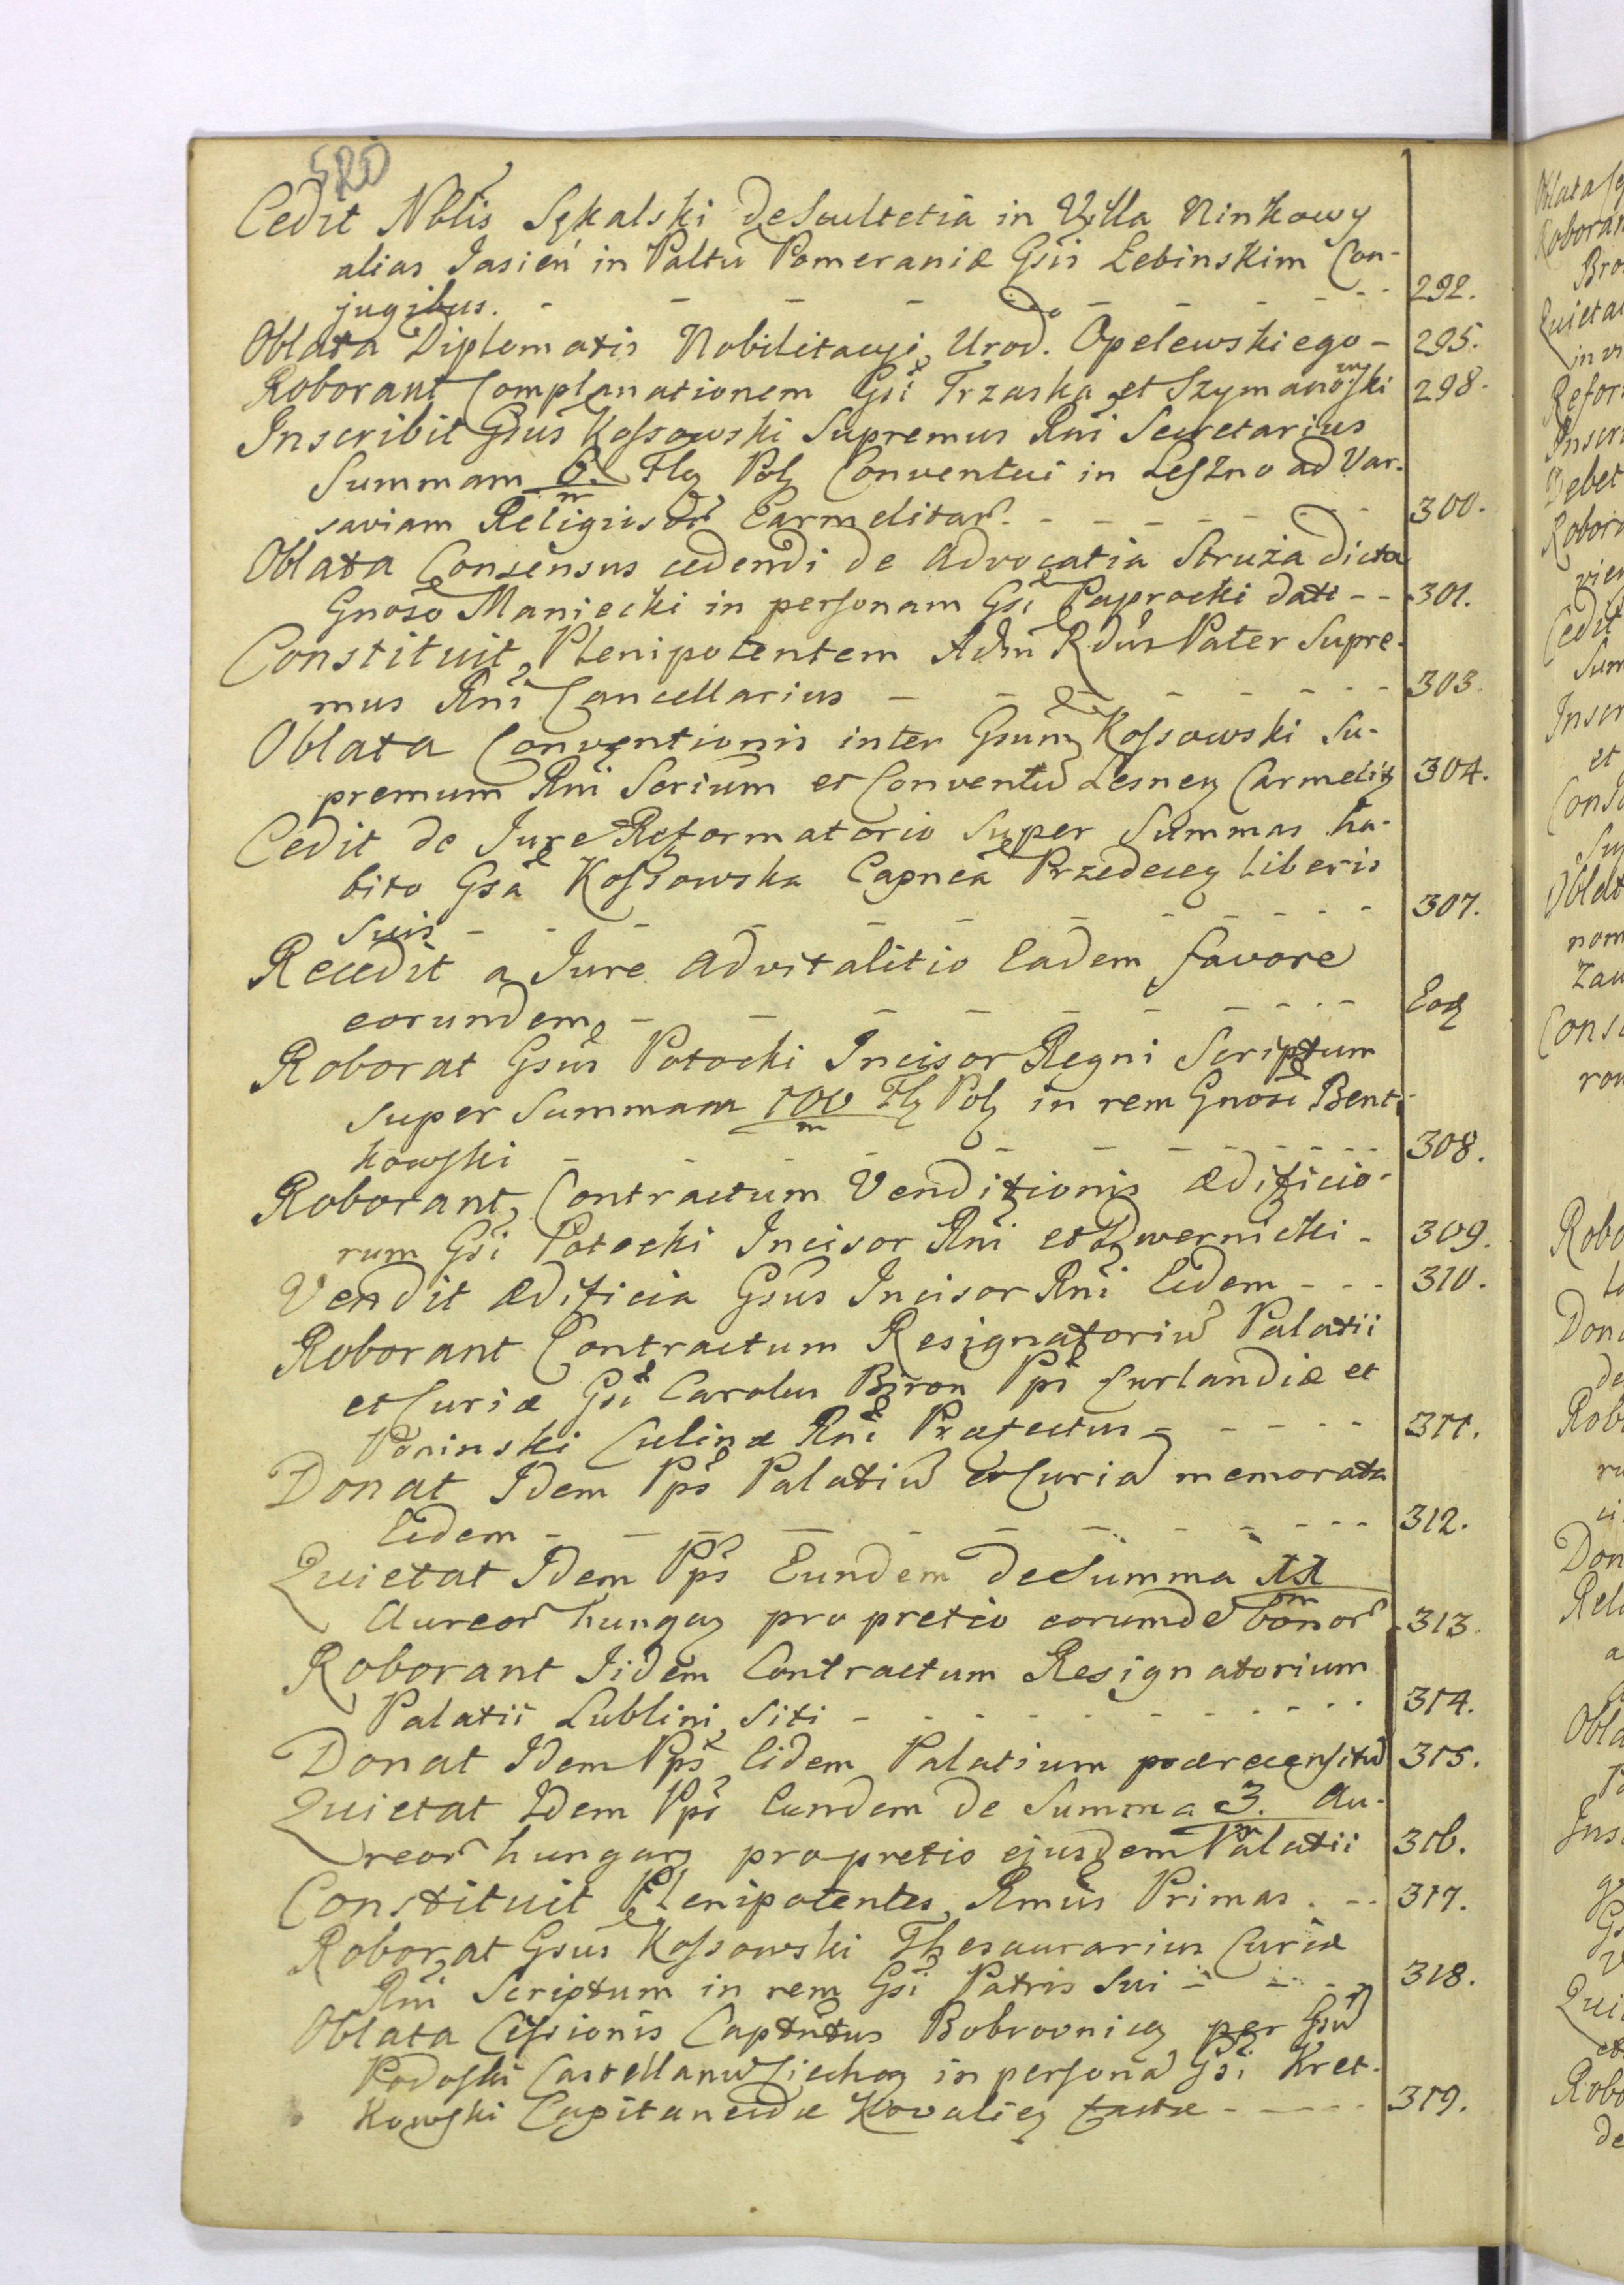 520
Cedit Nblis Sękalski de Scultetia in Vylla Ninkowy
alias Jasień in Paltu Pomeraniæ Gsis Łebinskim Con-
jugibus. - - - - - - - - - 292.
Oblata Diplomatis Nobilitacyi Urod. Opelewskiego - 295.
Roborant Complanationem Gsi Trzaska et Szymanowski 298.
Inscribit Gsus Kossowski Supremus Rni Secretarius
Summam 6./m Flg Polg Conventui in Leszno ad Var-
saviam Religiisor Carmelitar. - - - - - - - 300.
Oblata Consensus cedendi de Advocatia Struża dicta
Gnoso Maniecki in personam Gsi Paprocki dati - - 301.
Constituit Plenipotentem Adm Rdus Pater Supre-
mus Rni Cancellarius - - - - - - - 303.
Oblata Conventionis inter Gsum Kossowski Su-
premum Rni Scrium et Conventu Lesneg Carmelig 304.
Cedit de Jure Reformatorio Super Summas ha-
bito Gsa Kossowska Capnea Przedeceg Liberis
Suis - - - - - - - - - - 307.
Recedit a Jure Advitalitio Eadem favore
eorundem - - - - - - - - - Eog
Roborat Gsus Potocki Incisor Regni Scriptum
Super Summam 100/m Flg Polg in rem Gnosi Bent-
kowski - - - - - - - - - 308.
Roborant Contractum Venditionis Ædificio-
rum Gsi Potocki Incisor Rni et Dwernicki - 309.
Vendit Ædificia Gsus Incisor Rni Eidem - - - 310.
Roborant Contractum Resignatoriu Palatii
et Curiæ Gsi Carolus Biron Pps Curlandiæ et
Poninski Culinæ Rni Præfectus - - - - - 311.
Donat Idem Pps Palatiu et Curia memorata
Eidem - - - - - - - - - - 312.
Quietat Idem Pps Eundem de Summa 11/m
Aureor hungag pro pretio eorumde bonor 313.
Roborant Iidem Contractum Resignatorium
Palatii Lublini Siti - - - - - - - - - 314.
Donat Idem Pps Eidem Palatium præreensitu 315.
Quietat Idem Pps Eundem de Summa 3./m Au-
reor hungarg pro pretio ejusdem Palatii 316.
Constituit Plenipotentes Rmus Primas. - - 317.
Roborat Gsus Kossowski Thesaurarius Curiæ
Rni Scriptum in rem Gsi Patris Sui - - - 318.
Oblata Cessionis Captntus Bobrovnicg per Gsu
Podoski Castellanu Ciechag in persona Gsi Kret-
kowski Capitaneidæ Kovalieg factæ - - - - 319.